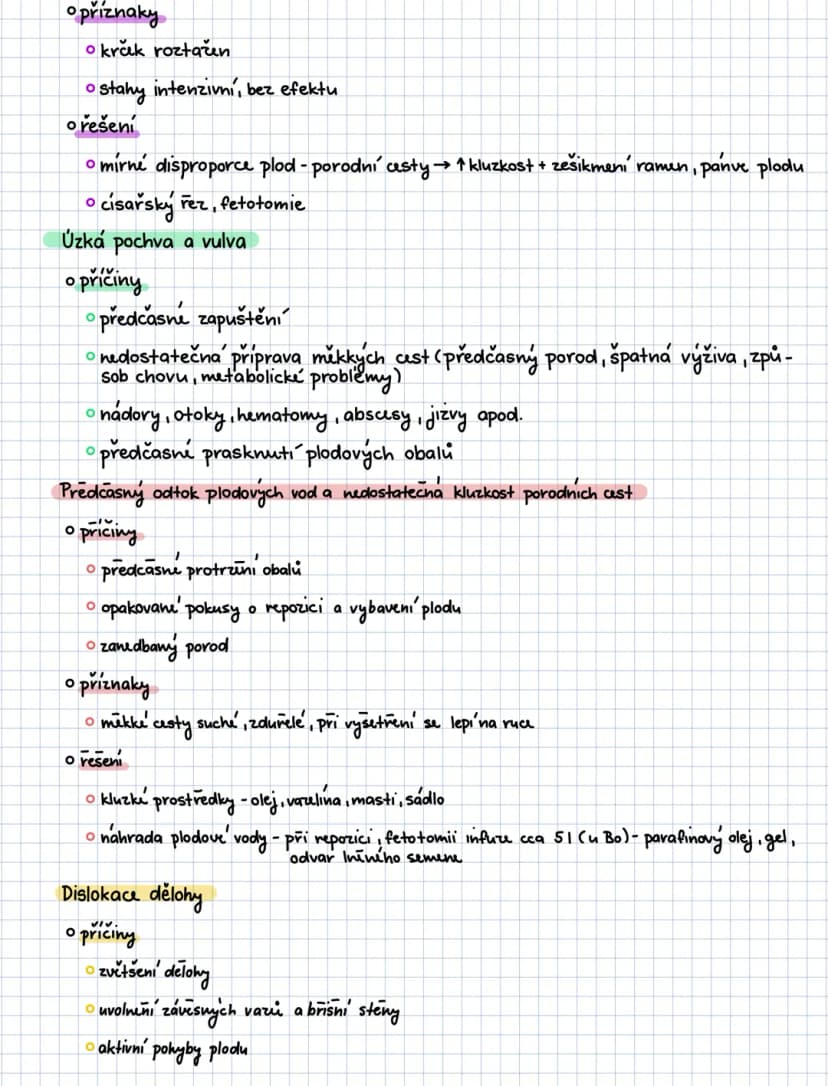 příznaky
krček roztažen
stahy intenzivní, bez efektu
řešení
mírné disproporce plod - porodní cesty → ↑ kluzkost + zešikmení ramen, pánve plodu
císařský řez, fetotomie
Úzká pochva a vulva
příčiny
předčasné zapuštění
nedostatečná příprava měkkých cest (předčasný porod, špatná výživa, způ-
sob chovu, metabolické problémy)
nádory, otoky, hematomy, abscesy, jizvy apod.
předčasné prasknutí plodových obalů
Předčasný odtok plodových vod a nedostatečná kluzkost porodních cest
příčiny
předčasné protržení obalů
opakované pokusy o repozici a vybavení plodu
zanedbaný porod
příznaky
měkké cesty suché, zduřelé, při vyšetření se lepí na ruce
řešení
kluzké prostředky - olej, vazelína, masti, sádlo
náhrada plodové vody - při repozici, fetotomii infuze cca 5l (u Bo) - parafínový olej, gel,
odvar lněného semene
Dislokace dělohy
příčiny
zvětšení dělohy
uvolnění závěsných vazů a břišní stěny
aktivní pohyby plodu